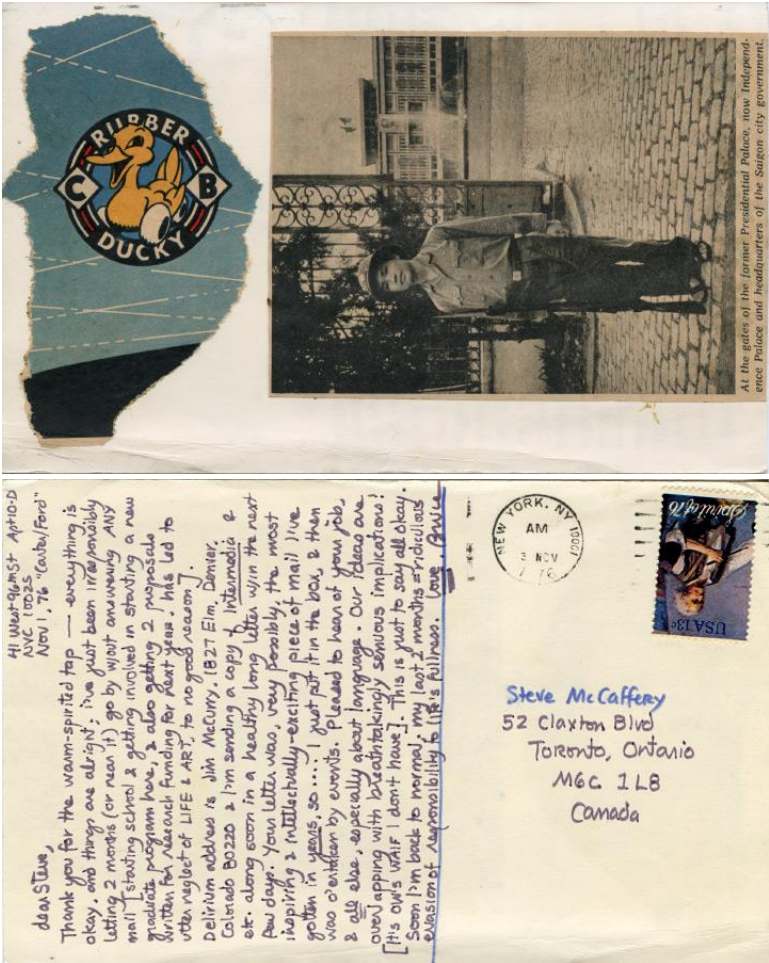 RUBBER
C B
DUCKY
At the gates of the former Presidential Palace, now Independ-
ence Palace and headquarters of the Saigon city government.
41 West 96th St Apt 10-D
NYC 10025
Nov 1, 76 "Carter/Ford"
dear Steve,
Thank you for the warm-spirited tap — everything is
okay. and things are alright: i've just been irresponsibly
letting 2 months (or near it) go by w/out answering ANY
mail [starting school & getting involved in starting a new
graduate program here, & also getting 2 proposals
written for research funding for next year. has led to
utter neglect of LIFE & ART, to no good reason].
Delirium address is Jim McCurry, 1827 Elm, Denver,
Colorado 80220 & i'm sending a copy of Intermedia &
etc. along soon in a healthy long letter w/in the next
few days. Your letter was, very possibly, the most
inspiring & intellectually-exciting piece of mail I've
gotten in years, so .... I just put it in the box, & then
was o'ertaken by events. Pleased to hear of your job,
& all else, especially about language. Our ideas are
overlapping with breathtakingly sensuous implications!
[It's owl's waif I don't have]. This is just to say all okay.
Soon I'm back to normal, my last 2 months = ridiculous
evasion of responsibility to life's fullness. Love, Bruce
NEW YORK, NY 10001
AM
3 NOV
76
Spirit of 76
USA 13c
Steve McCaffery
52 Claxton Blvd
Toronto, Ontario
M6C 1L8
Canada